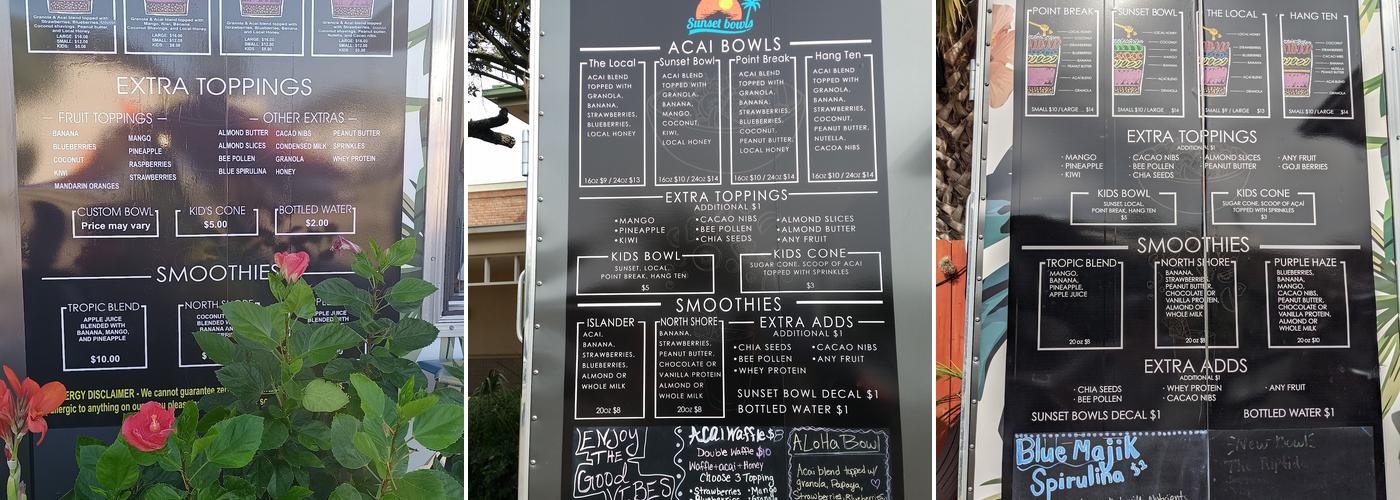 Granola & Acai blend topped with
Strawberries, Blueberries,
Coconut shavings, Peanut butter,
and Local Honey
LARGE: $16.00
SMALL: $12.00
KIDS: $8.00
Granola & Acai blend topped with
Mango, Kiwi, Banana,
Coconut Shavings, and Local Honey
LARGE: $16.00
SMALL: $12.00
KIDS: $8.00
EXTRA TOPPINGS
FRUIT TOPPINGS
BANANA
BLUEBERRIES
COCONUT
KIWI
MANDARIN ORANGES
MANGO
PINEAPPLE
RASPBERRIES
STRAWBERRIES
OTHER EXTRAS
ALMOND BUTTER
ALMOND SLICES
BEE POLLEN
BLUE SPIRULINA
CACAO NIBS
CONDENSED MILK
GRANOLA
HONEY
PEANUT BUTTER
SPRINKLES
WHEY PROTEIN
CUSTOM BOWL
Price may vary
KID'S CONE
$5.00
BOTTLED WATER
$2.00
SMOOTHIES
TROPIC BLEND
APPLE JUICE
BLENDED WITH
BANANA, MANGO,
AND PINEAPPLE
$10.00
NORTH SHORE
ERGY DISCLAIMER - We cannot guarantee
allergic to anything on our
Sunset bowls
ACAI BOWLS
The Local
ACAI BLEND
TOPPED WITH
GRANOLA,
BANANA,
STRAWBERRIES,
BLUEBERRIES,
LOCAL HONEY
16oz $9 / 24oz $13
Sunset Bowl
ACAI BLEND
TOPPED WITH
GRANOLA,
BANANA,
MANGO,
COCONUT,
KIWI,
LOCAL HONEY
16oz $10 / 24oz $14
Point Break
ACAI BLEND
TOPPED WITH
GRANOLA,
BANANA,
STRAWBERRIES,
BLUEBERRIES,
COCONUT,
PEANUT BUTTER,
LOCAL HONEY
16oz $10 / 24oz $14
Hang Ten
ACAI BLEND
TOPPED WITH
GRANOLA,
BANANA,
STRAWBERRIES,
COCONUT,
PEANUT BUTTER,
NUTELLA,
CACOA NIBS
16oz $10 / 24oz $14
EXTRA TOPPINGS
ADDITIONAL $1
•MANGO
•PINEAPPLE
•KIWI
•CACAO NIBS
•BEE POLLEN
•CHIA SEEDS
•ALMOND SLICES
•ALMOND BUTTER
•ANY FRUIT
KIDS BOWL
SUNSET, LOCAL,
POINT BREAK, HANG TEN
$5
KIDS CONE
SUGAR CONE, SCOOP OF ACAI
TOPPED WITH SPRINKLES
$3
SMOOTHIES
ISLANDER
ACAI,
BANANA,
STRAWBERRIES,
BLUEBERRIES,
ALMOND OR
WHOLE MILK
20oz $8
NORTH SHORE
BANANA,
STRAWBERRIES,
PEANUT BUTTER,
CHOCOLATE OR
VANILLA PROTEIN
ALMOND OR
WHOLE MILK
20oz $8
EXTRA ADDS
ADDITIONAL $1
•CHIA SEEDS
•BEE POLLEN
•WHEY PROTEIN
•CACAO NIBS
•ANY FRUIT
SUNSET BOWLS DECAL $1
BOTTLED WATER $1
ENJOY
THE
Good
VIBES
Acai Waffle $8
Double Waffle $10
Waffle+acai+Honey
Choose 3 Topping
•Strawberries •Mango
ALoHa Bowl
Acai blend topped w/
granola, Papaya,
Strawberries, Blueberries
POINT BREAK
LOCAL HONEY
COCONUT
STRAWBERRIES
BLUEBERRIES
BANANA
PEANUT BUTTER
ACAI BLEND
GRANOLA
SMALL $10 / LARGE $14
SUNSET BOWL
SMALL $10 / LARGE $14
THE LOCAL
SMALL $9 / LARGE $13
HANG TEN
SMALL $10 / LARGE $14
EXTRA TOPPINGS
ADDITIONAL $1
· MANGO
· PINEAPPLE
· KIWI
· CACAO NIBS
· BEE POLLEN
· CHIA SEEDS
· ALMOND SLICES
· PEANUT BUTTER
· ANY FRUIT
· GOJI BERRIES
KIDS BOWL
SUNSET, LOCAL,
POINT BREAK, HANG TEN
$5
KIDS CONE
SUGAR CONE, SCOOP OF ACAI
TOPPED WITH SPRINKLES
$3
SMOOTHIES
TROPIC BLEND
MANGO,
BANANA,
PINEAPPLE,
APPLE JUICE
20oz $8
NORTH SHORE
BANANA,
STRAWBERRIES,
PEANUT BUTTER,
CHOCOLATE OR
VANILLA PROTEIN,
ALMOND OR
WHOLE MILK
20oz $8
PURPLE HAZE
BLUEBERRIES,
BANANA,
MANGO,
CACAO NIBS,
PEANUT BUTTER,
CHOCOLATE OR
VANILLA PROTEIN,
ALMOND OR
WHOLE MILK
20oz $10
EXTRA ADDS
ADDITIONAL $1
· CHIA SEEDS
· BEE POLLEN
· WHEY PROTEIN
· CACAO NIBS
· ANY FRUIT
SUNSET BOWLS DECAL $1
BOTTLED WATER $1
Blue Majik
Spirulina $2
New Bowl
The Riptid